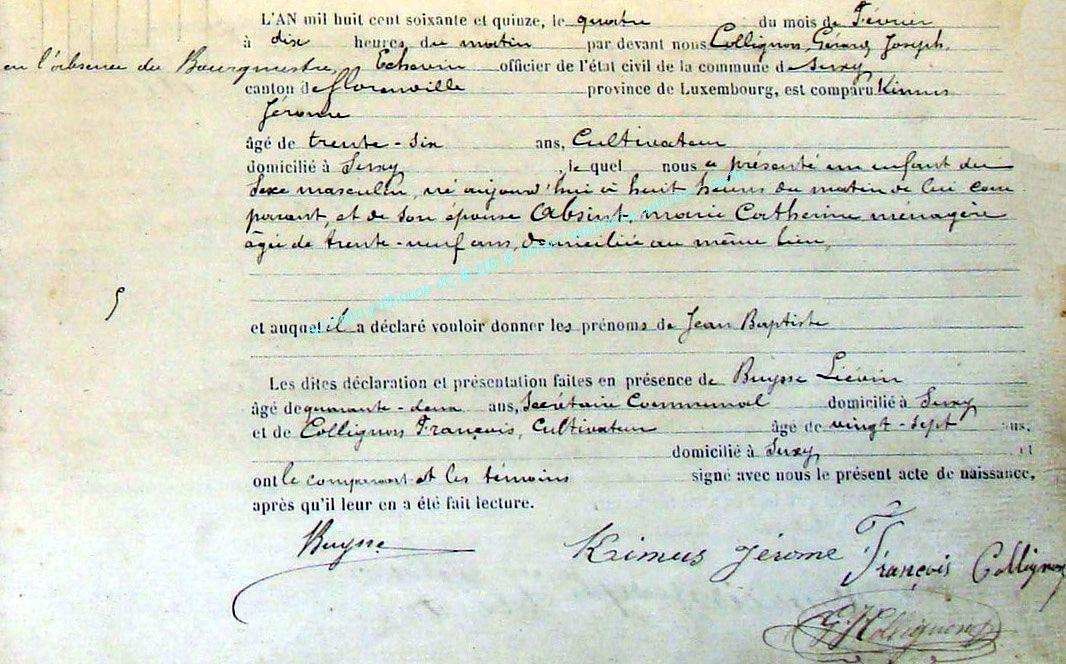 L'AN mil huit cent soixante et quinze, le quatre du mois de Février
à dix heures du matin par devant nous Collignon, Gérard Joseph,
en l'absence du Bourgmestre, Echevin officier de l'état civil de la commune de Suxy
canton de florenville province de Luxembourg, est comparu
Jérome
âgé de trente-six ans, Cultivateur
domicilié à Suxy, le quel nous a présenté un enfant du
Sexe masculin, né aujourd'hui à huit heures du matin de lui com
parant, et de son épouse Absint, marie Catherine ménagère
âgée de trente-neuf ans, domiciliée au même lieu,
5
et auquel il a déclaré vouloir donner les prénoms de Jean Baptiste
Les dites déclaration et présentation faites en présence de Buysse Liévin
âgé de quarante-deux ans, Secrétaire Communal domicilié à Suxy
et de Collignon François, Cultivateur âgé de vingt-sept ans,
domicilié à Suxy, et
ont le comparant et les témoins signé avec nous le présent acte de naissance,
après qu'il leur en a été fait lecture.
Buysse Krimus Jérome François Collignon
G J Collignon